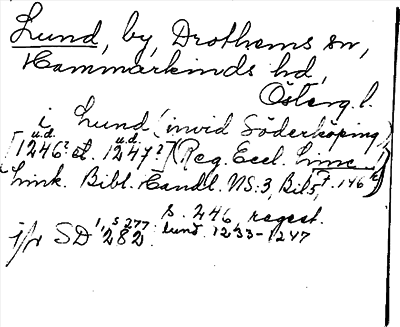 Lund, by, Drothems sn,
Hammarkinds hd,
Österg.l.
i Lund (invid Söderköping)
u.d. u.d.
[1246? et. 1247?] (Reg. Eccl. Linc.
Link. Bibl. Handl. NS:3, Bil 5, f. 146
s. 246 regest.
jfr SD 1, s 277 Lund 1233-1247
282